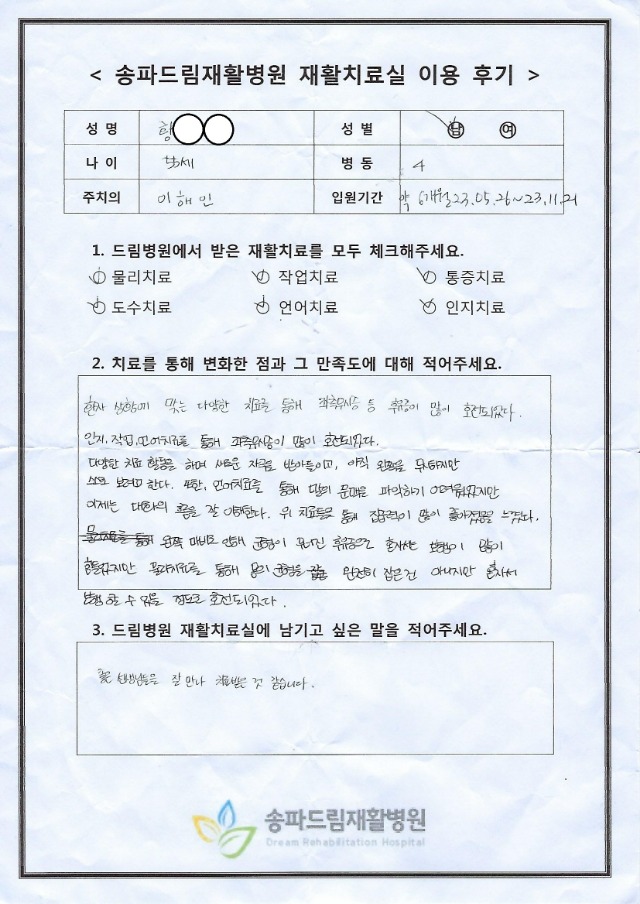 < 송파드림재활병원 재활치료실 이용 후기 >
성 명 성 별 남 여
나 이 병 동 4
주치의 이해민 입원기간 약 6개월 23.05.26~23.11.21
1. 드림병원에서 받은 재활치료를 모두 체크해주세요.
물리치료 작업치료 통증치료
도수치료 언어치료 인지치료
2. 치료를 통해 변화한 점과 그 만족도에 대해 적어주세요.
환자 상황에 맞는 다양한 치료를 통해 좌측무시증 등 후유증이 많이 호전되었다.
인지, 작업, 언어치료를 통해 좌측무시증이 많이 호전되었다.
다양한 치료 활동을 하며 새로운 자극을 받아들이고, 아직 완벽을 못하지만
스스로 보려고 한다. 또한, 언어치료를 통해 말의 문맥을 파악하기 어려웠지만
이제는 대화의 흐름을 잘 이해한다. 위 치료들을 통해 집중력이 많이 좋아졌음을 느꼈다.
왼쪽 마비로 인해 균형이 무너진 후유증으로 혼자서는 보행이 많이
힘들었지만 물리치료를 통해 몸의 균형을 완전히 잡은건 아니지만 혼자서
보행할 수 있을 정도로 호전되었다.
3. 드림병원 재활치료실에 남기고 싶은 말을 적어주세요.
좋은 선생님들을 잘 만나 치료받은 것 같습니다.
송파드림재활병원
Dream Rehabilitation Hospital